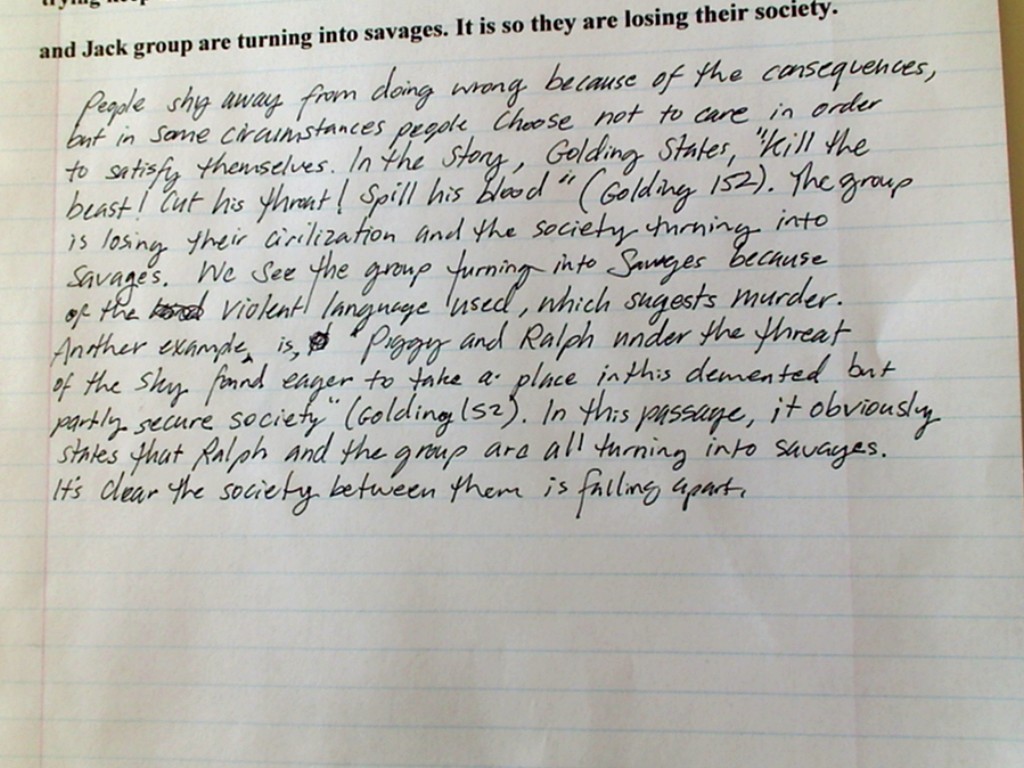 and Jack group are turning into savages. It is so they are losing their society.
People shy away from doing wrong because of the consequences,
but in some circumstances people choose not to care in order
to satisfy themselves. In the story, Golding states, "Kill the
beast! Cut his throat! Spill his blood" (Golding 152). The group
is losing their civilization and the society turning into
savages. We see the group turning into savages because
of the violent language used, which sugests murder.
Another example, is, "Piggy and Ralph under the threat
of the sky, found eager to take a place in this demented but
partly secure society" (Golding 152). In this passage, it obviously
states that Ralph and the group are all turning into savages.
It's clear the society between them is falling apart.